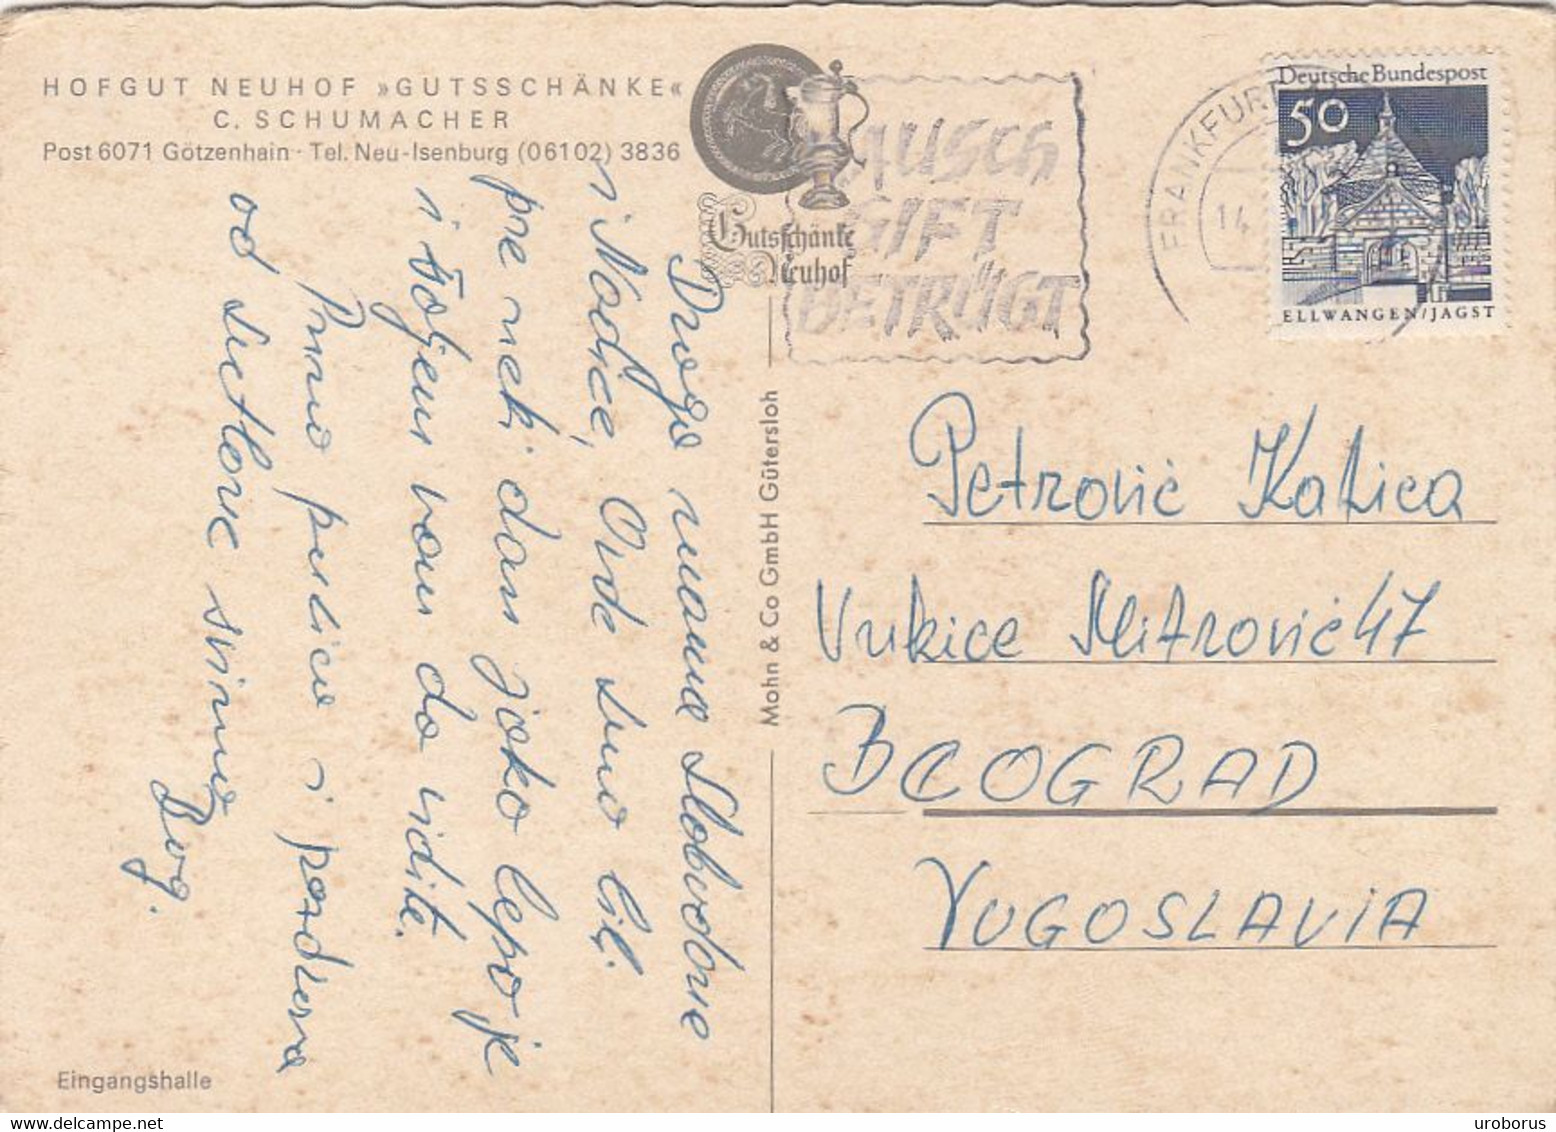 HOFGUT NEUHOF »GUTSSCHÄNKE«
C. SCHUMACHER
Post 6071 Götzenhain · Tel. Neu-Isenburg (06102) 3836
Gutsschänke
Neuhof
RAUSCH
GIFT
BETRÜGT
FRANKFURT
14.
Deutsche Bundespost
50
ELLWANGEN/JAGST
Draga mama Slobodane
i Nodice, Ovde smo bil.
pre neki dan joko lepo je
i voljeu vam da vidite.
Puno pusica i pozdrava
od Svetlane
Bog.
Mohn & Co GmbH Gütersloh
Petrović Katica
Vukice Mitrović 47
BEOGRAD
YUGOSLAVIA
Eingangshalle
uroborus